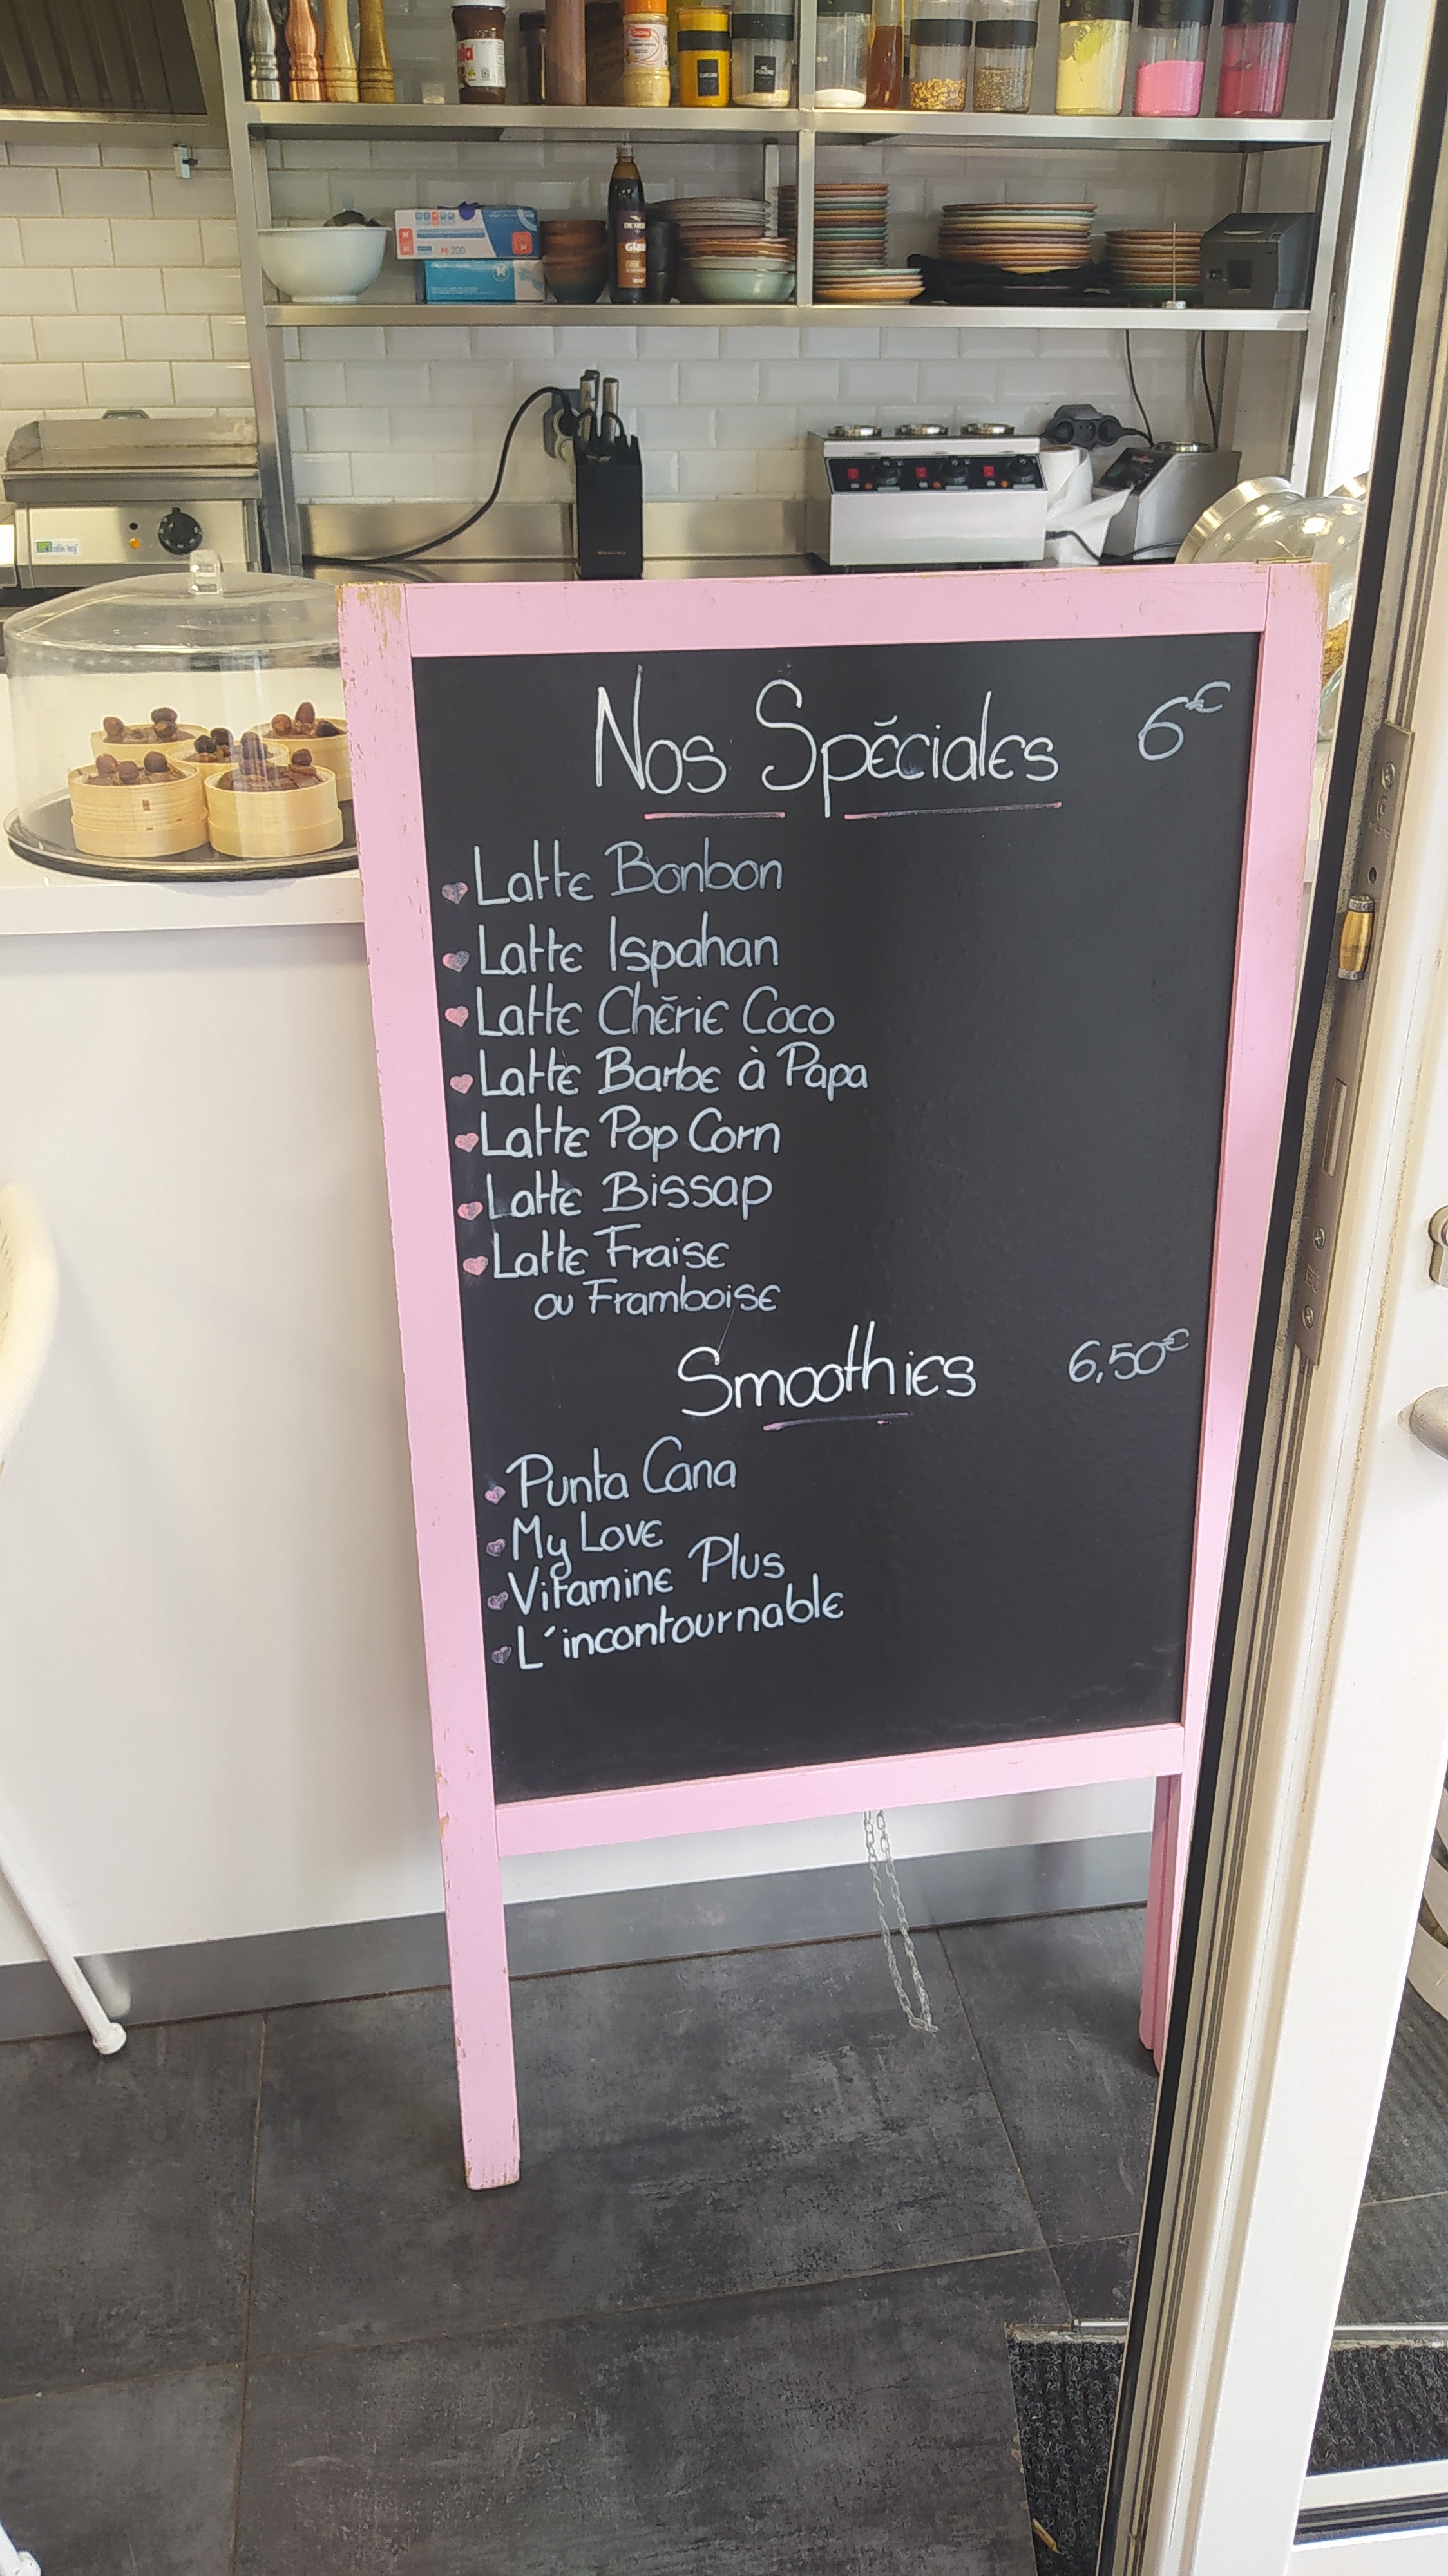 CURCUMA
Nos Spéciales 6€
Latte Bonbon
Latte Ispahan
Latte Chérie Coco
Latte Barbe à Papa
Latte Pop Corn
Latte Bissap
Latte Fraise
ou Framboise
Smoothies 6,50€
Punta Cana
My Love
Vitamine Plus
L'incontournable